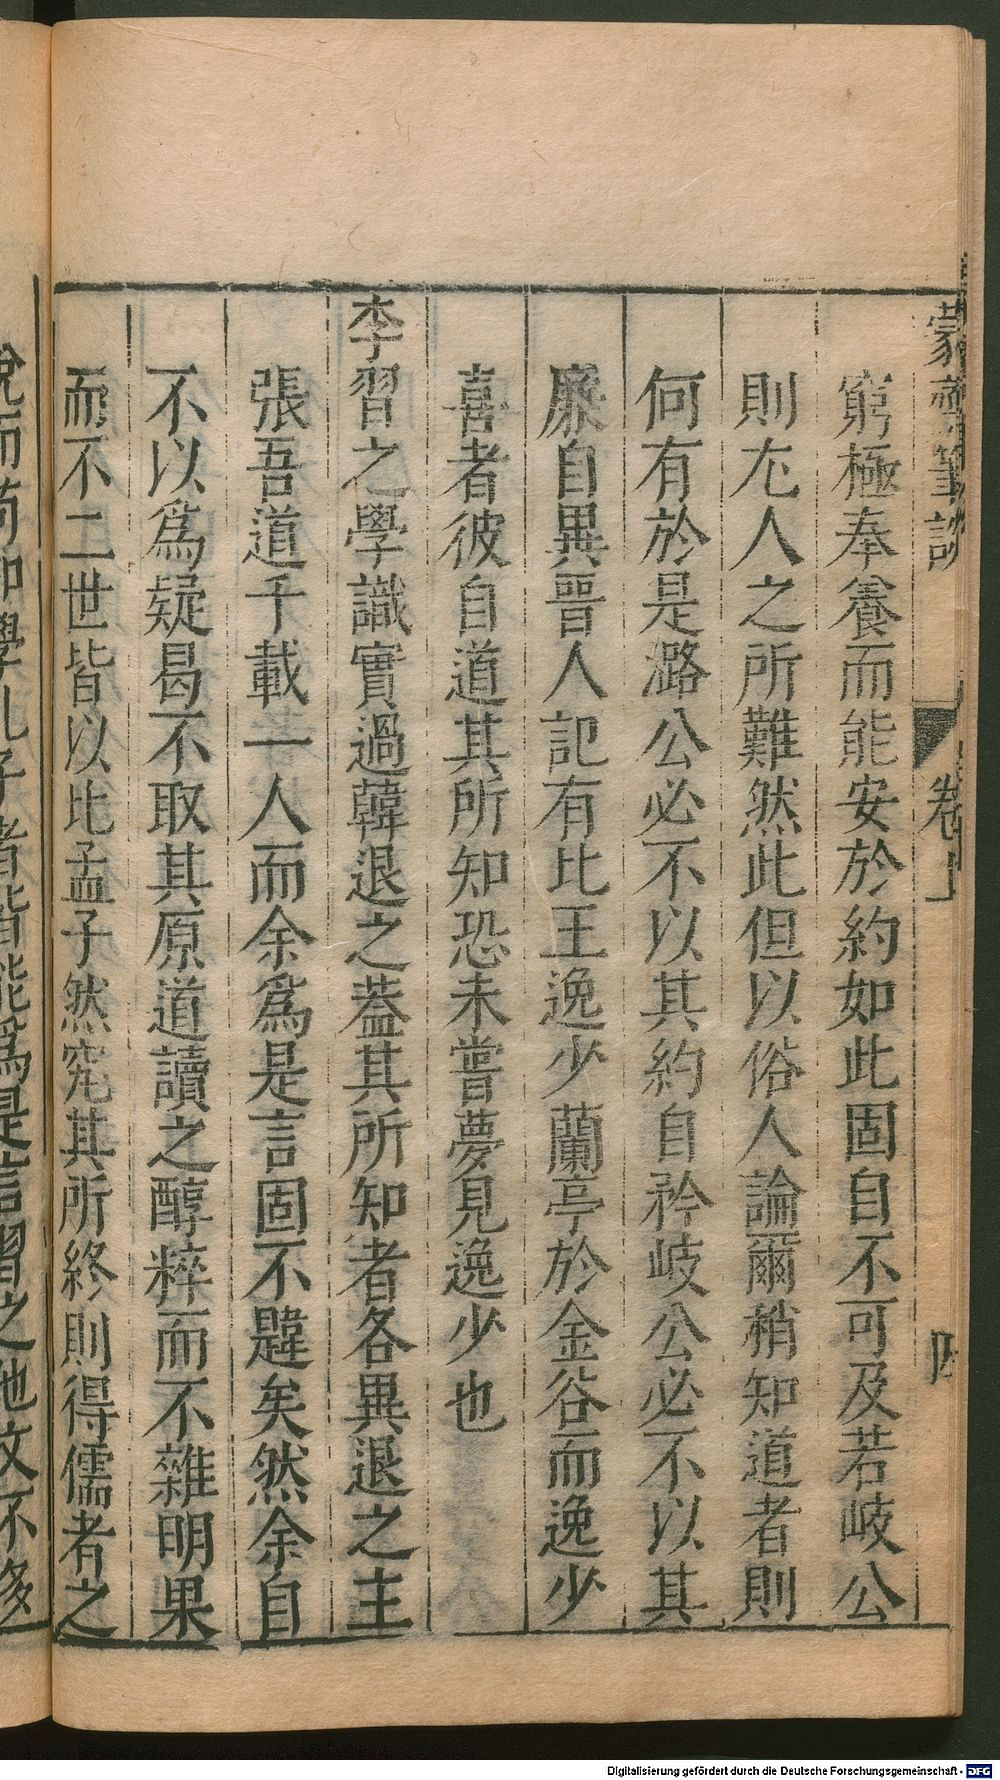 蒙齋筆談 卷上 四
窮極奉養而能安於約如此固自不可及若岐公
則尢人之所難然此但以俗人論爾稍知道者則
何有於是潞公必不以其約自矜岐公必不以其
廉自異晉人記有比王逸少蘭亭於金谷而逸少
喜者彼自道其所知恐未嘗夢見逸少也
李習之學識實過韓退之蓋其所知者各異退之主
張吾道千載一人而余爲是言固不韙矣然余自
不以爲疑曷不取其原道讀之醇粹而不雜明果
而不二世皆以比孟子然究其所終則得儒者之
說而苟卹學孔子者皆能爲是言習之他文不多
Digitalisierung gefördert durch die Deutsche Forschungsgemeinschaft - DFG